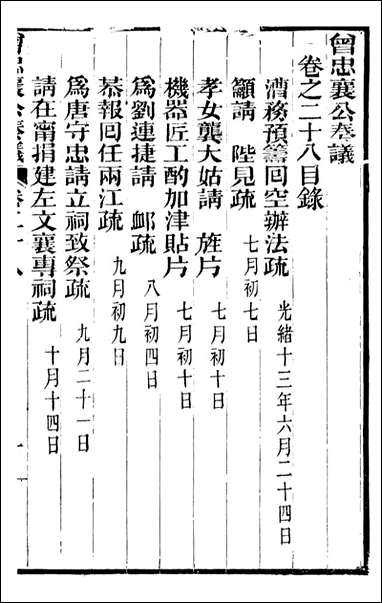 曾忠襄公奏議
卷之二十八目錄
漕務預籌回空辦法疏 光緒十三年六月二十四日
籲請 陛見疏 七月初七日
孝女龔大姑請 旌片 七月初十日
機器匠工酌加津貼片 七月初十日
爲劉連捷請 卹疏 八月初四日
恭報回任兩江疏 九月初九日
爲唐守忠請立祠致祭疏 九月二十一日
請在甯捐建左文襄專祠疏 十月十四日
曾忠襄公奏議 卷二十八